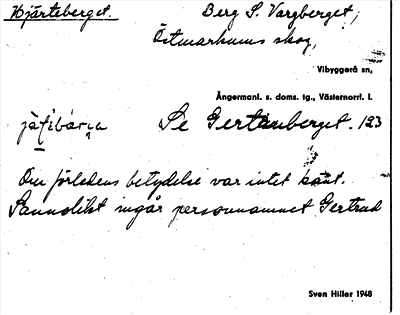 Hjärteberget. Berg S. Vargberget,
Östmarkums skog,
Vibyggerå sn,
Ångermanl. s. doms. tg., Västernorrl. l.
Se Gertauberget. 123
Om förledens betydelse var intet känt.
Sannolikt ingår personnamnet Gertrud
Sven Hiller 1948